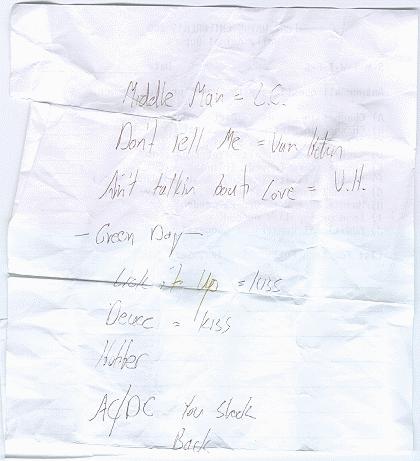 Middle Man = L.C.
Don't Tell Me = Van
Ain't talkin bout Love = V.H.
- Green Day -
Lick it Up = KISS
Deuce = KISS
AC/DC You Shook
Back